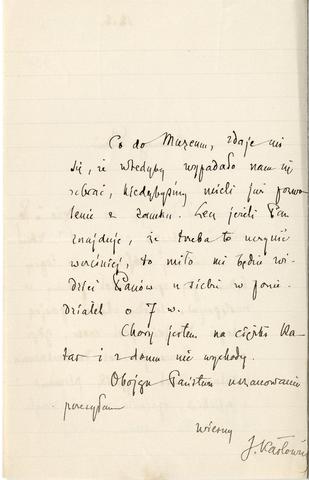 Co do Muzeum, zdaje mi
się, iż wtedyby wypadało nam się
zebrać, kiedybyśmy mieli już pozwo
lenie z zamku. Lecz jeżeli Pan
znajduje, że trzeba to uczynić
wcześniej, to miło mi będzie wi-
dzieć Panów u siebie w ponie-
działek o 7 w.
Chory jestem na ciężki ka
tar i z domu nie wychodzę.
Obojgu Państwu uszanowanie
przesyłam
wierny
J. Karłowicz